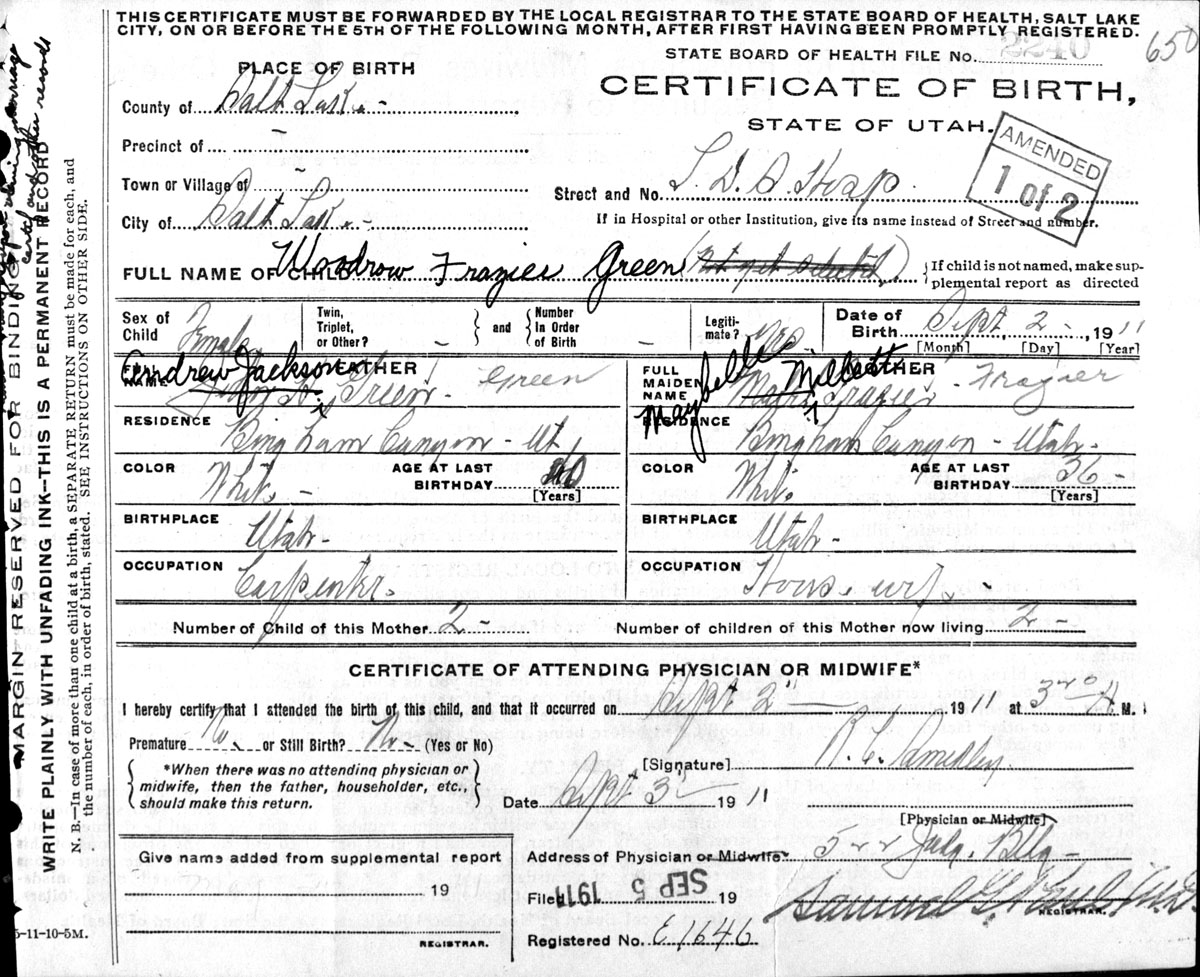 THIS CERTIFICATE MUST BE FORWARDED BY THE LOCAL REGISTRAR TO THE STATE BOARD OF HEALTH, SALT LAKE
CITY, ON OR BEFORE THE 5TH OF THE FOLLOWING MONTH, AFTER FIRST HAVING BEEN PROMPTLY REGISTERED.
650
STATE BOARD OF HEALTH FILE No. 2240
PLACE OF BIRTH
CERTIFICATE OF BIRTH,
STATE OF UTAH.
AMENDED
1 Of 2
County of Salt Lake -
Precinct of -
Town or Village of -
Street and No. L. D. S Hosp.
City of Salt Lake -
If in Hospital or other Institution, give its name instead of Street and number.
FULL NAME OF CHILD Woodrow Frazier Green
{If child is not named, make sup-
plemental report as directed
Sex of Child Female
Twin, Triplet, or Other? -
and
Number In Order of Birth -
Legiti-mate? Yes
Date of Birth Sept 2 - 1911
[Month] [Day] [Year]
FULL NAME FATHER
Andrew Jackson Green
FULL MAIDEN NAME MOTHER
Maybelle Millett Frazier
RESIDENCE Bingham Canyon - Ut
RESIDENCE Bingham Canyon - Utah -
COLOR White - AGE AT LAST BIRTHDAY 40 [Years]
COLOR White AGE AT LAST BIRTHDAY 36 - [Years]
BIRTHPLACE Utah -
BIRTHPLACE Utah -
OCCUPATION Carpenter.
OCCUPATION Housewife -
Number of Child of this Mother 2 -
Number of children of this Mother now living 2 -
CERTIFICATE OF ATTENDING PHYSICIAN OR MIDWIFE*
I hereby certify that I attended the birth of this child, and that it occurred on Sept 2" 1911 at 3 A M.
Premature No - or Still Birth? No - (Yes or No)
*When there was no attending physician or
midwife, then the father, householder, etc.,
should make this return.
[Signature]
Date Sept 3 1911
[Physician or Midwife]
Give name added from supplemental report
19
REGISTRAR.
Address of Physician or Midwife 522 Judg. Bldg -
Filed SEP 5 1911 19
REGISTRAR.
Registered No. E1646
5-11-10-5M.
MARGIN RESERVED FOR BINDING
WRITE PLAINLY WITH UNFADING INK—THIS IS A PERMANENT RECORD
N. B.—In case of more than one child at a birth, a SEPARATE RETURN must be made for each, and
the number of each, in order of birth, stated. SEE INSTRUCTIONS ON OTHER SIDE.